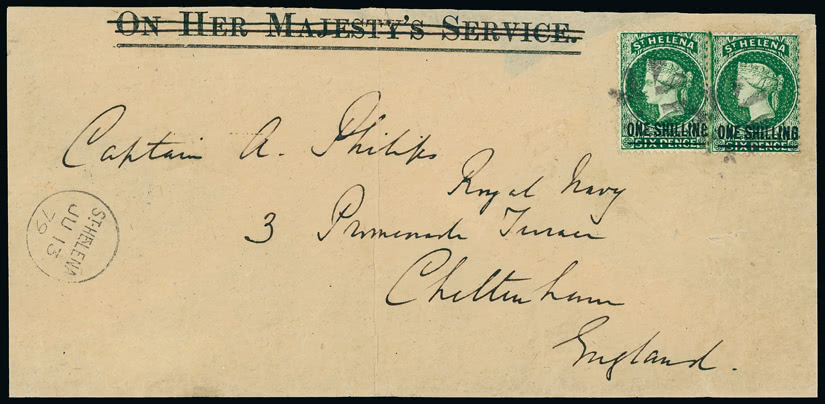 ON HER MAJESTY'S SERVICE.
ST HELENA
ONE SHILLING
SIX PENCE
ST HELENA
ONE SHILLING
SIX PENCE
Captain A. Philips
Royal Navy
3 Promenade
Cheltenham
England.
ST. HELENA
JU 13
79